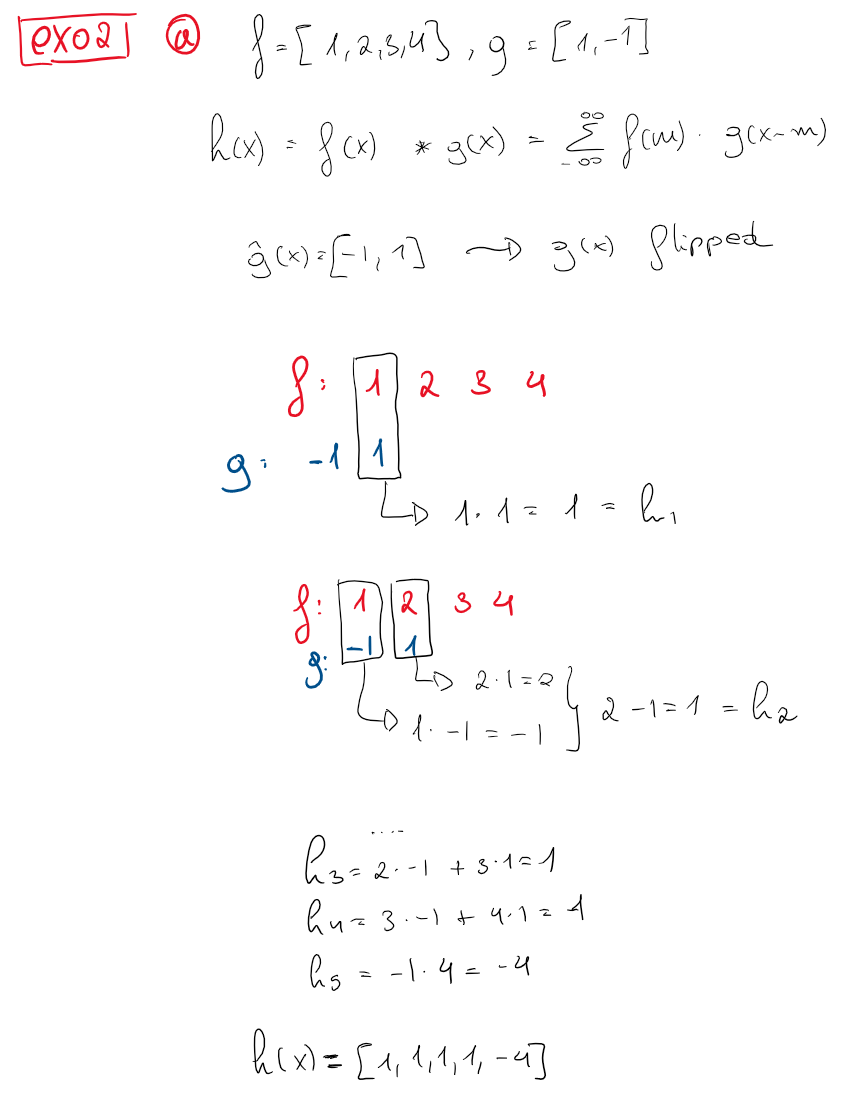 exo2 ⓐ f = [1,2,3,4], g = [1,-1]
h(x) = f(x) * g(x) = ∞Σ-∞ f(m) · g(x-m)
ĝ(x) = [-1, 1] → g(x) flipped
f: 1 2 3 4
g: -1 1
→ 1 · 1 = 1 = h₁
f: 1 2 3 4
g: -1 1
→ 2 · 1 = 2
→ 1 · -1 = -1 } 2 - 1 = 1 = h₂
....
h₃ = 2 · -1 + 3 · 1 = 1
h₄ = 3 · -1 + 4 · 1 = 1
h₅ = -1 · 4 = -4
h(x) = [1, 1, 1, 1, -4]